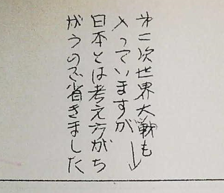 第二次世界大戦も
入っていますが→
日本とは考え方がち
がうので省きました